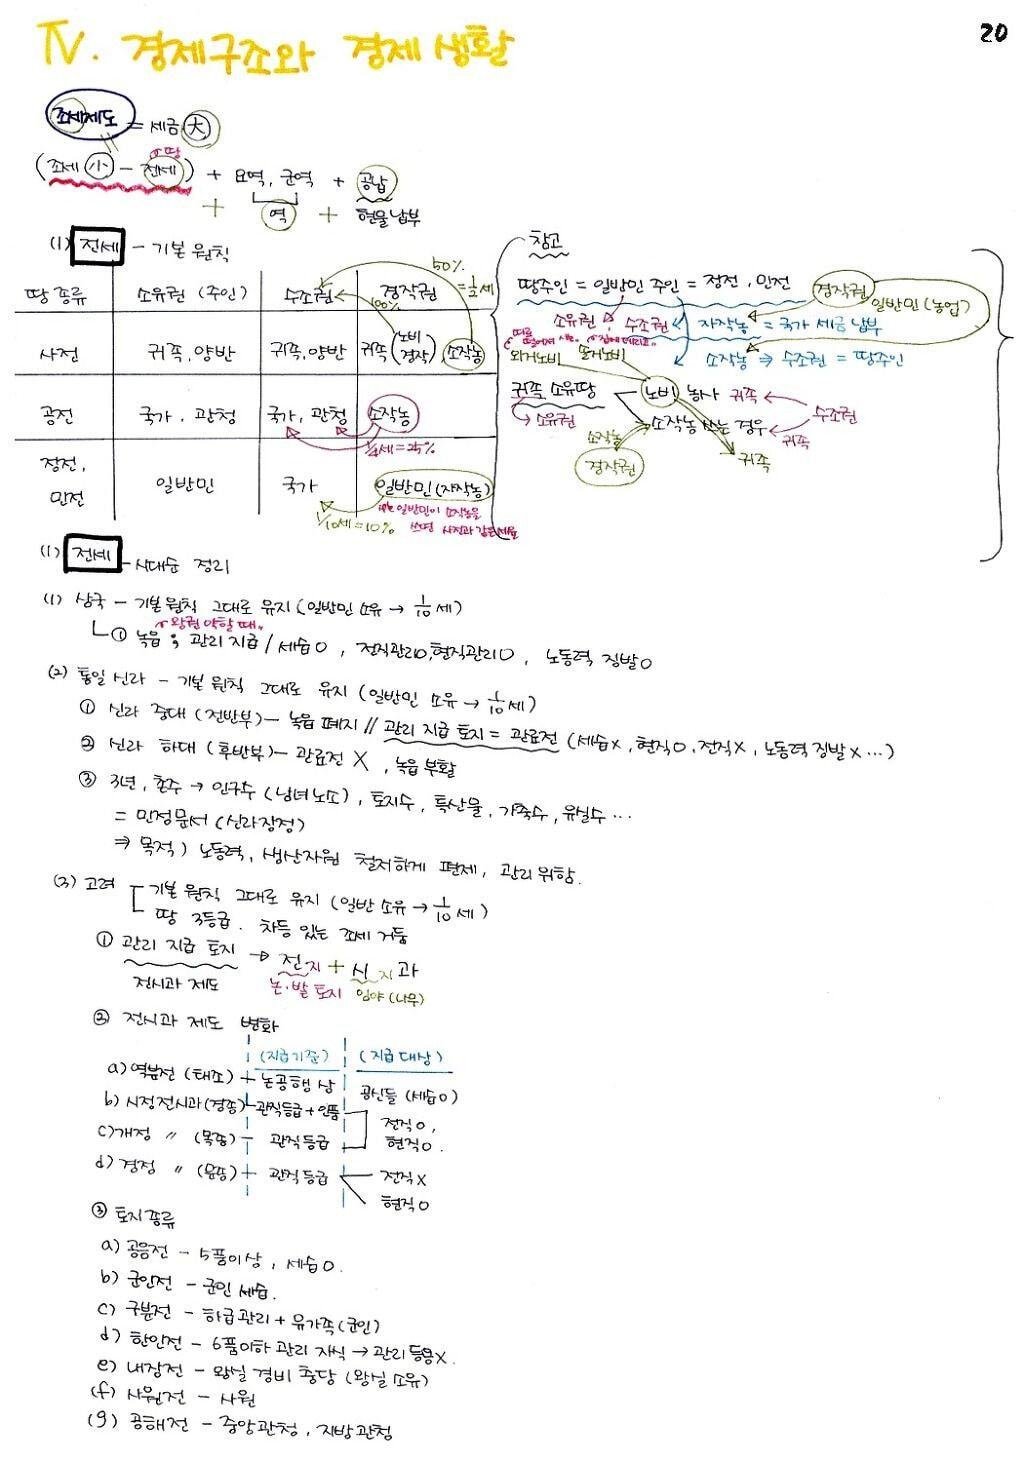 20
Ⅳ. 경제구조와 경제 생활
조세제도 = 세금 大
↗땅
(조세 小 - 전세) + 요역, 군역 + 공납
+ 역 + 현물 납부
(1) 전세 - 기본 원칙
땅 종류 소유권 (주인) 수조권 경작권
50% = 1/2세
100%
사전 귀족, 양반 귀족, 양반 귀족 (노비 경작) 소작농
공전 국가, 관청 국가, 관청 소작농
1/4세 = 25%
정전, 민전 일반민 국가 일반민 (자작농)
1/10세 = 10%
만약 일반민이 소작농을
쓰면 사전과 같은 비율
참고
땅주인 = 일반민 주인 = 정전, 민전
경작권
일반민 (농업)
소유권, 수조권 자작농 = 국가 세금 납부
소작농 ⇒ 수조권 = 땅주인
따로 떨어져
외거노비 솔거노비
귀족 소유땅 노비 농사 귀족
→소유권 수조권
소작농 쓰는 경우 귀족
소작농
경작권 귀족
(1) 전세 - 시대순 정리
(1) 삼국 - 기본 원칙 그대로 유지 (일반민 소유 → 1/10세)
↗왕권 약할 때.
① 녹읍 ; 관리 지급 / 세습O, 전직관리O, 현직관리O, 노동력 징발O
(2) 통일 신라 - 기본 원칙 그대로 유지 (일반민 소유 → 1/10세)
① 신라 중대 (전반부) - 녹읍 폐지 // 관리 지급 토지 = 관료전 (세습X, 현직O, 전직X, 노동력 징발X …)
② 신라 하대 (후반부) - 관료전 X, 녹읍 부활
③ 3년, 촌주 → 인구수 (남녀노소), 토지수, 특산물, 가축수, 유실수 …
= 민정문서 (신라장정)
⇒ 목적) 노동력, 생산자원 철저하게 편제, 관리 위함.
(3) 고려 기본 원칙 그대로 유지 (일반 소유 → 1/10세)
땅 3등급. 차등 있는 조세 거둠
① 관리 지급 토지 → 전지 + 시지과
전시과 제도 논·밭 토지 임야 (나무)
② 전시과 제도 변화
(지급기준) (지급 대상)
a) 역분전 (태조) 논공행상 공신들 (세습O)
b) 시정전시과 (경종) 관직등급 + 인품 전직O,
c) 개정 〃 (목종) 관직등급 현직O.
d) 경정 〃 (문종) 관직등급 전직X
현직O
③ 토지 종류
a) 공음전 - 5품이상, 세습O.
b) 군인전 - 군인 세습.
c) 구분전 - 하급관리 + 유가족 (군인)
d) 한인전 - 6품이하 관리 자식 → 관리 등용X.
e) 내장전 - 왕실 경비 충당 (왕실 소유)
(f) 사원전 - 사원
(g) 공해전 - 중앙관청, 지방관청